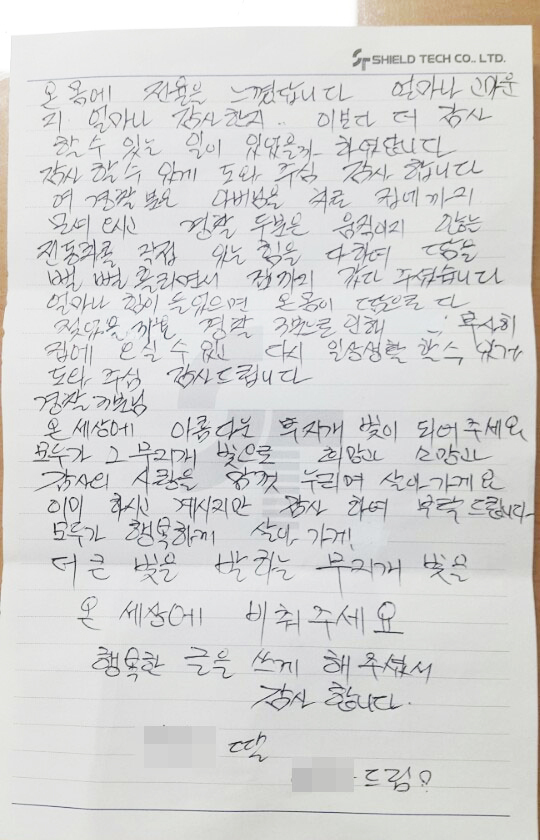 SHIELD TECH CO., LTD.
온몸에 전율을 느꼈답니다 얼마나 고마운
지 얼마나 감사한지.. 이보다 더 감사
할 수 있는 일이 있었을까 하였답니다
감사 할 수 있게 도와 주심 감사 합니다
여 경찰 분은 아버님을 차로 집에까지
모셔 오시고 경찰 두분은 움직이지 않는
전동차를 직접 있는 힘을 다하여 땀을
뻘 뻘 흘리면서 집까지 갖다 주셨습니다
얼마나 힘이 들었으면 온몸이 땀으로 다
젖었을까요 경찰 3분으로 인해 무사히
집에 오실 수 있고 다시 일상생활 할 수 있게
도와 주심 감사드립니다
경찰
온 세상에 아름다운 무지개 빛이 되어주세요
모두가 그 무지개 빛으로 희망과 소망과
감사의 사랑을 맘껏 누리며 살아가게요
이미 하시고 계시지만 감사 하며 부탁드립니다
모두가 행복하게 살아 가게!
더 큰 빛을 발하는 무지개 빛을
온 세상에 비춰주세요
행복한 글을 쓰게 해 주셔서
감사 합니다.
딸
드림?